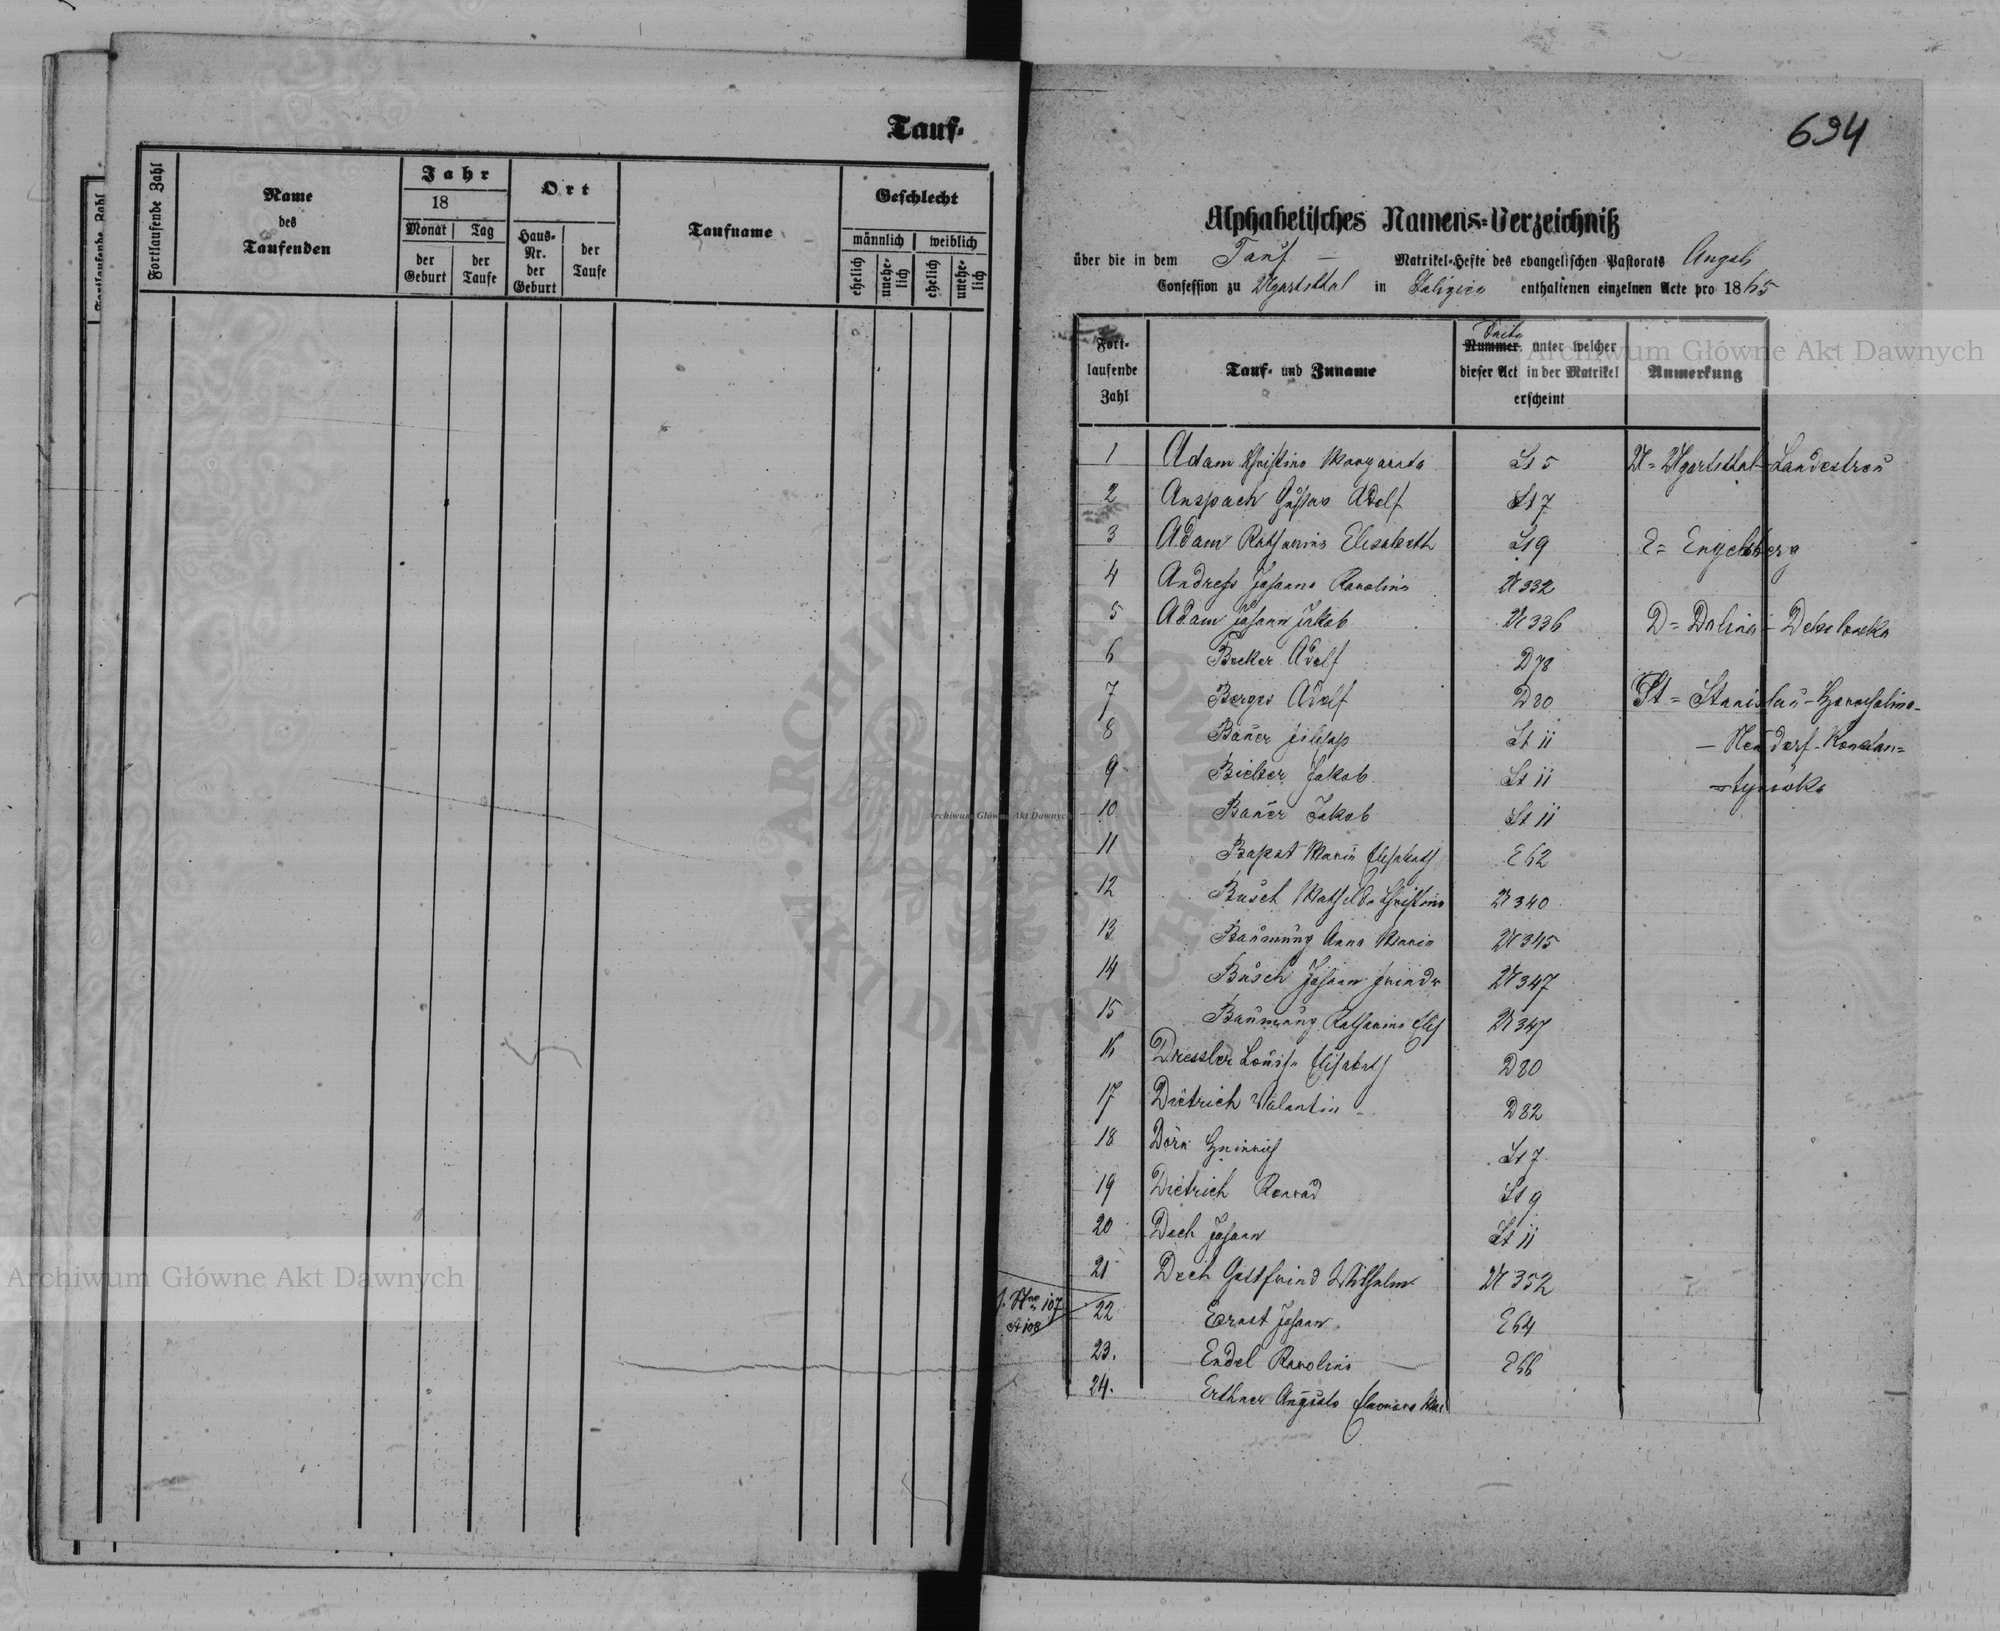 Tauf-
Fortlaufende Zahl
Name
des
Taufenden
Jahr
18
Monat Tag
der Geburt der Taufe
Ort
Haus-Nr. der Geburt
der Taufe
Taufname
Geschlecht
männlich weiblich
ehelich unehe-lich ehelich unehe-lich
Fortlaufende Zahl
694
Alphabetisches Namens-Verzeichniß
über die in dem Tauf — Matrikel-Hefte des evangelischen Pastorats Augsb
Confession zu Ugartsthal in Galizien enthaltenen einzelnen Acte pro 1865
Fort-
laufende
Zahl
Tauf- und Zuname
Seite
Nummer, unter welcher
dieser Act in der Matrikel
erscheint
Anmerkung
1 Adam Christina Margareta St 5 U = Ugartsthal - Landestreu
2 Anspach Gustav Adolf St 7
3 Adam Katharina Elisabeth St 9 E = Engelsberg
4 Andress Johanna Karolina U 332
5 Adam Johann Jakob U 336 D = Dolina -
6 Becker Adolf D 78
7 Berges Adolf D 80 St = Stanislau -
8 Bauer St 11 — Neudorf - Konstan=
9 Jakob St 11
10 Bauer Jakob St 11
11 Maria Elisabeth E 62
12 Busch Mathilda Christina U 340
13 Baumung Anna Maria U 345
14 Busch Johann Friedr U 347
15 Baumung Katharina Elis U 347
16 Dressler Louisa Elisabeth D 80
17 Dietrich Valentin D 82
18 Dörr Heinrich St 7
19 Dietrich Konrad St 9
20 Dech Johann St 11
21 Dech Gottfried Wilhelm U 352
107
108
22 Ernst Johann E 64
23. Endel Karolina E 66
24. Erthner Augusta Eleonora
Archiwum Główne Akt Dawnych
Archiwum Główne Akt Dawnych
Archiwum Główne Akt Dawnych
ARCHIWUM GŁÓWNE AKT DAWNYCH